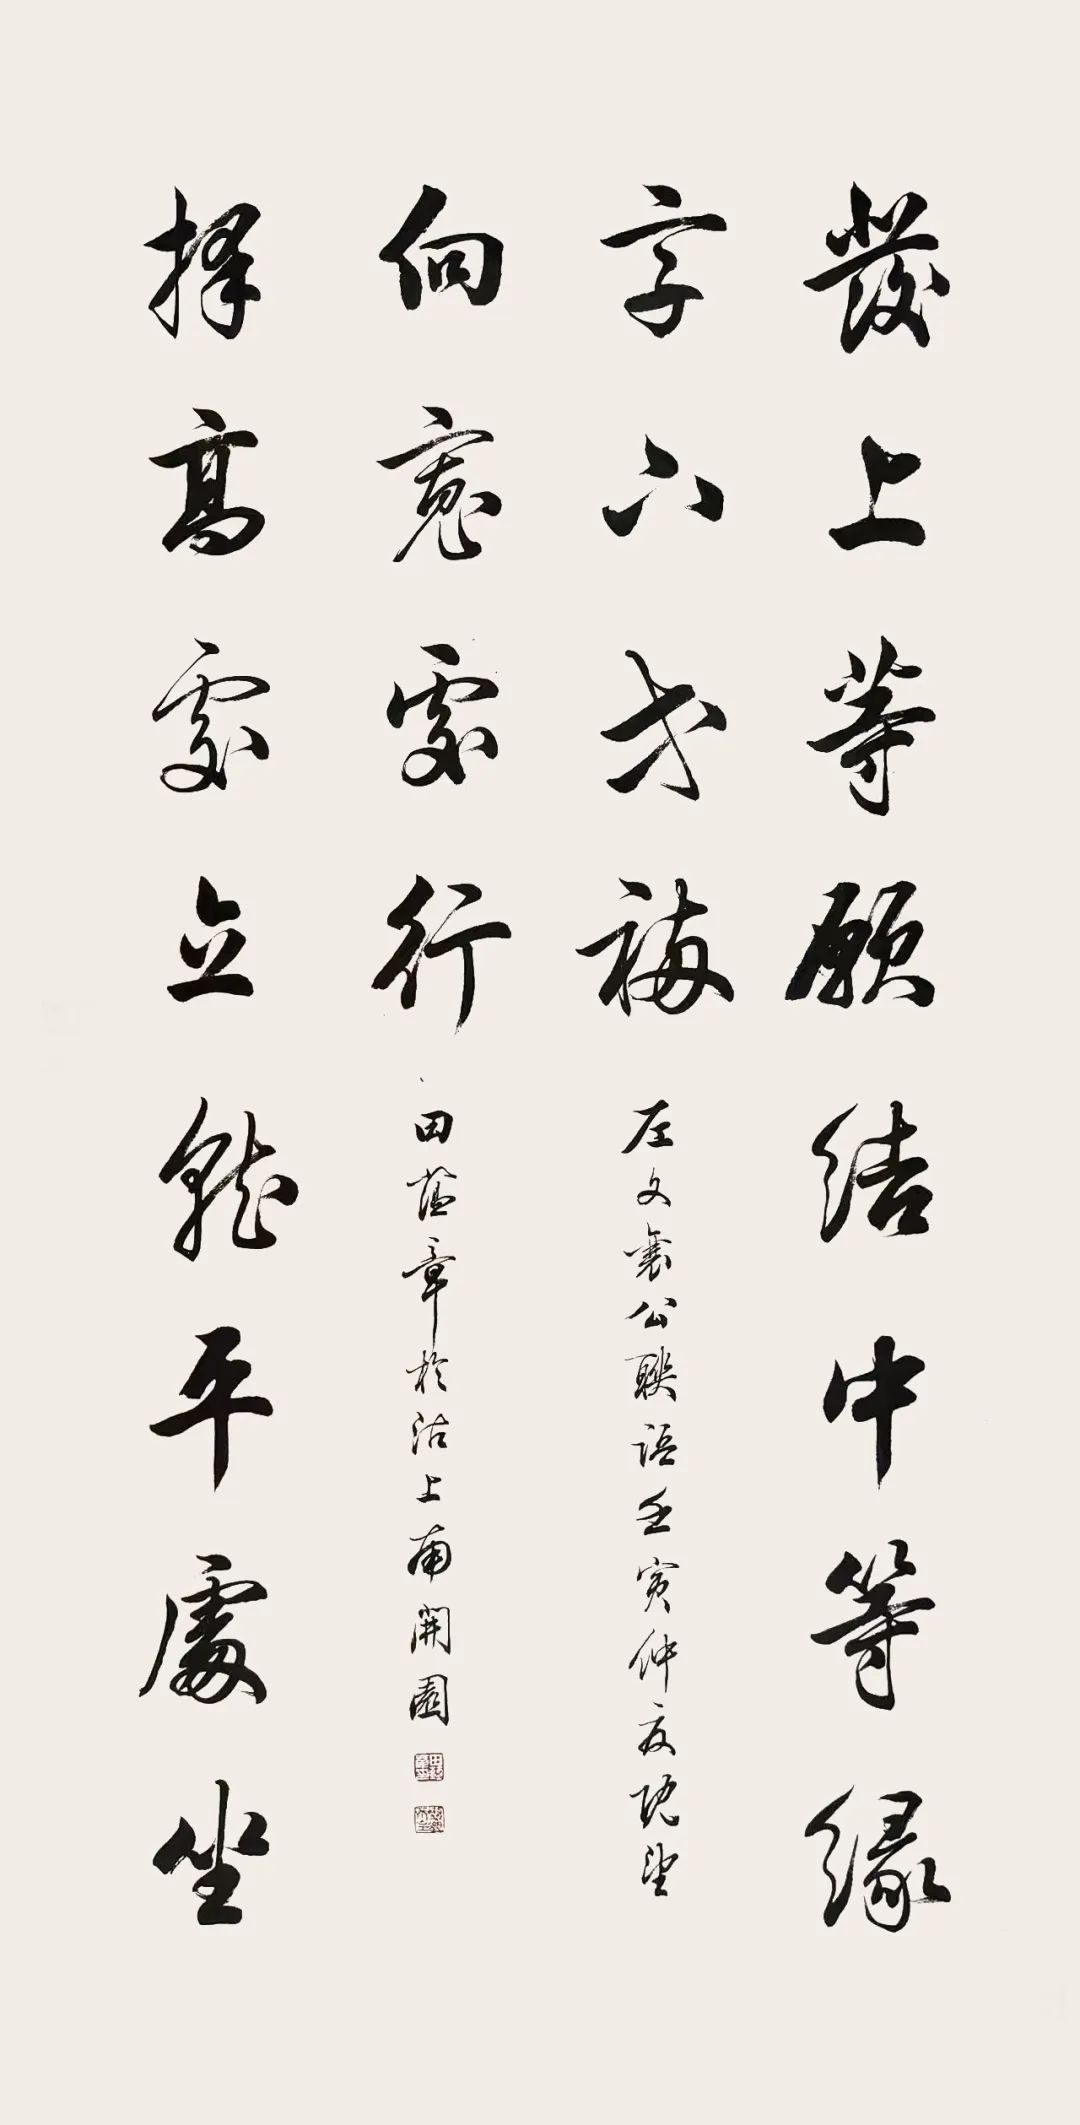 發上等願結中等緣
享下等福
左文襄公聯語壬寅仲夏既望
擇高處立就平處坐
向寬處行
田蘊章於沽上南開園